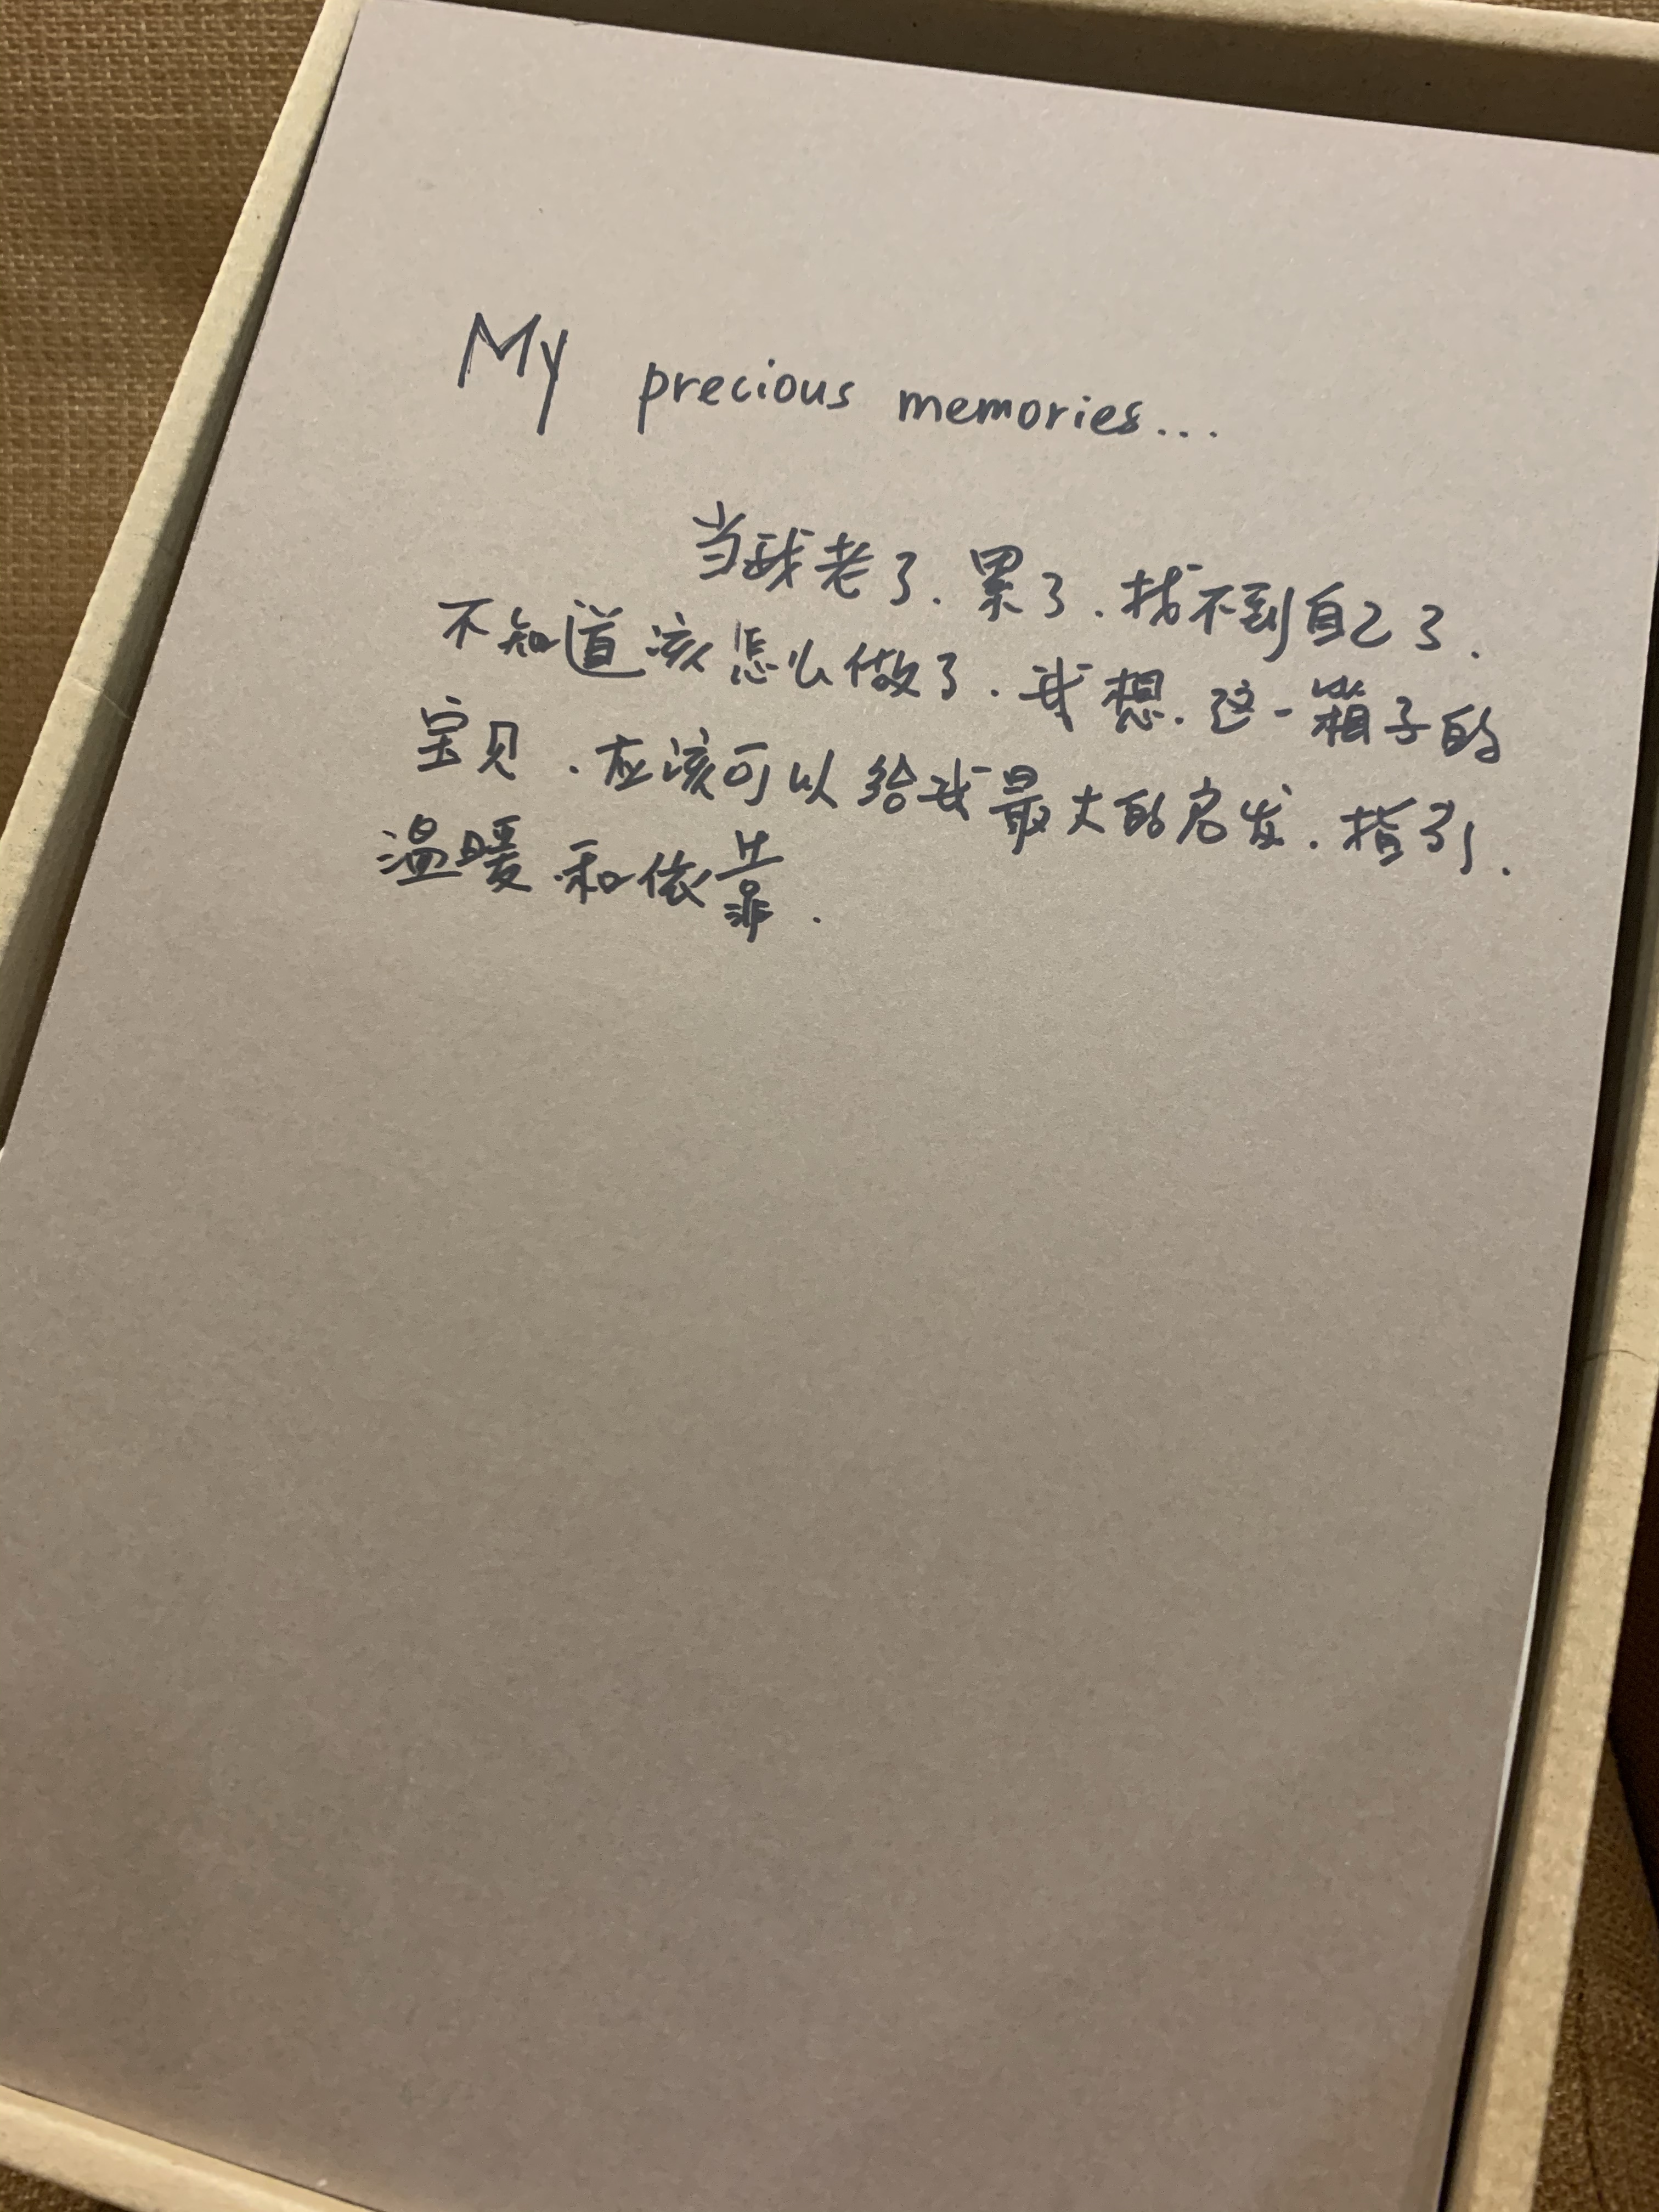 My precious memories...
当我老了.累了.找不到自己了.
不知道该怎么做了.我想.这一箱子的
宝贝.应该可以给我最大的启发.指引.
温暖.和依靠.